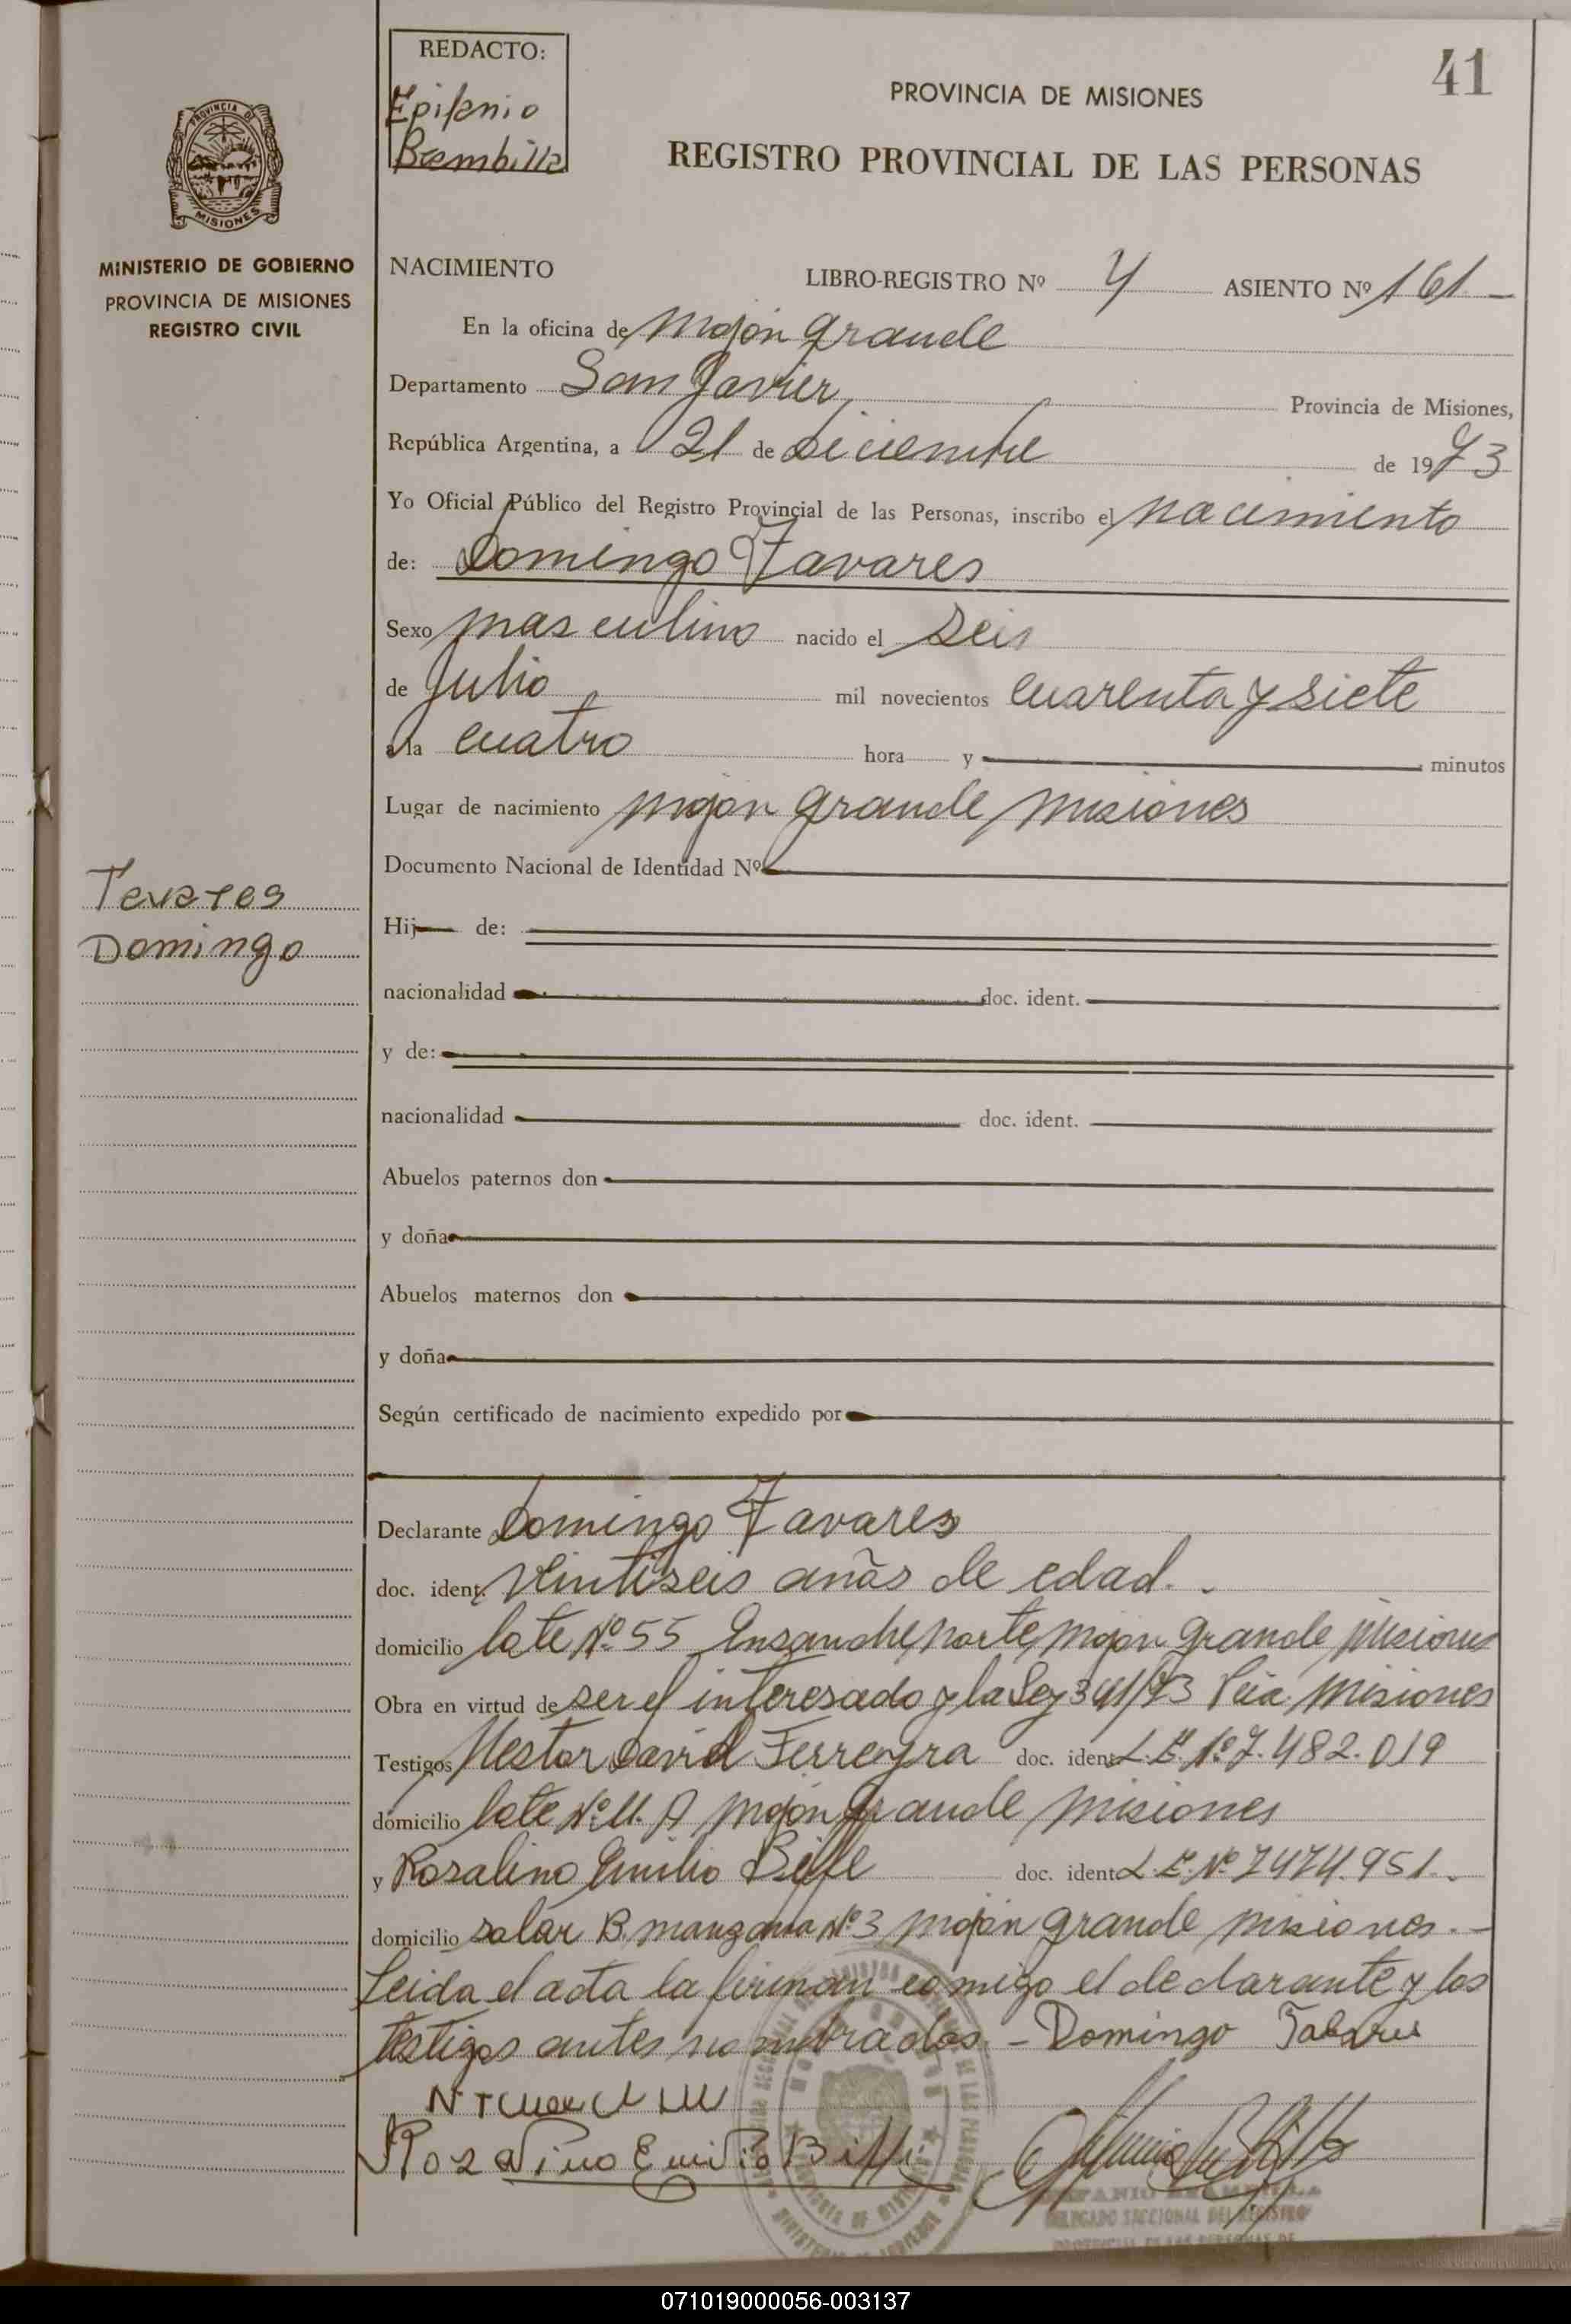 REDACTO:
Epifanio
Brambilla
41
PROVINCIA DE MISIONES
REGISTRO PROVINCIAL DE LAS PERSONAS
PROVINCIA DE
MISIONES
MINISTERIO DE GOBIERNO
PROVINCIA DE MISIONES
REGISTRO CIVIL
NACIMIENTO LIBRO-REGISTRO Nº 4 ASIENTO Nº 161
En la oficina de Mojón Grande
Departamento San Javier, Provincia de Misiones,
República Argentina, a 21 de Diciembre de 1973
Yo Oficial Público del Registro Provincial de las Personas, inscribo el nacimiento
de: Domingo Tavares
Sexo masculino nacido el seis
de Julio mil novecientos cuarenta y siete
a la cuatro hora y minutos
Lugar de nacimiento Mojon Grande, Misiones
Documento Nacional de Identidad Nº
Tavares
Domingo
Hij de:
nacionalidad doc. ident.
y de:
nacionalidad doc. ident.
Abuelos paternos don
y doña
Abuelos maternos don
y doña
Según certificado de nacimiento expedido por
Declarante Domingo Tavares
doc. ident. veintiseis años de edad.
domicilio lote Nº 55 Ensanche, norte, Mojon Grande, Misiones
Obra en virtud de ser el interesado y la Ley 341/73 Pcia. Misiones
Testigos Nestor David Ferreyra doc. ident. L.E. Nº 7.482.019
domicilio lote Nº 11. A Mojón Grande Misiones
y Rosalino Emilio doc. ident. L.E. Nº 7474.951.
domicilio solar B. manzana Nº 3, Mojón Grande Misiones.
Leida el acta la firman comigo el declarante y los
testigos antes nombrados. - Domingo Tabares
Rozalino Emilio Biffi
DELEGADO SECCIONAL DEL REGISTRO
PROVINCIAL DE LAS PERSONAS DE
071019000056-003137